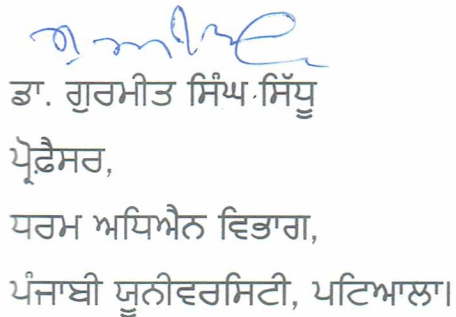 ਡਾ. ਗੁਰਮੀਤ ਸਿੰਘ ਸਿੱਧੂ
ਪ੍ਰੋਫ਼ੈਸਰ,
ਧਰਮ ਅਧਿਐਨ ਵਿਭਾਗ,
ਪੰਜਾਬੀ ਯੂਨੀਵਰਸਿਟੀ, ਪਟਿਆਲਾ।